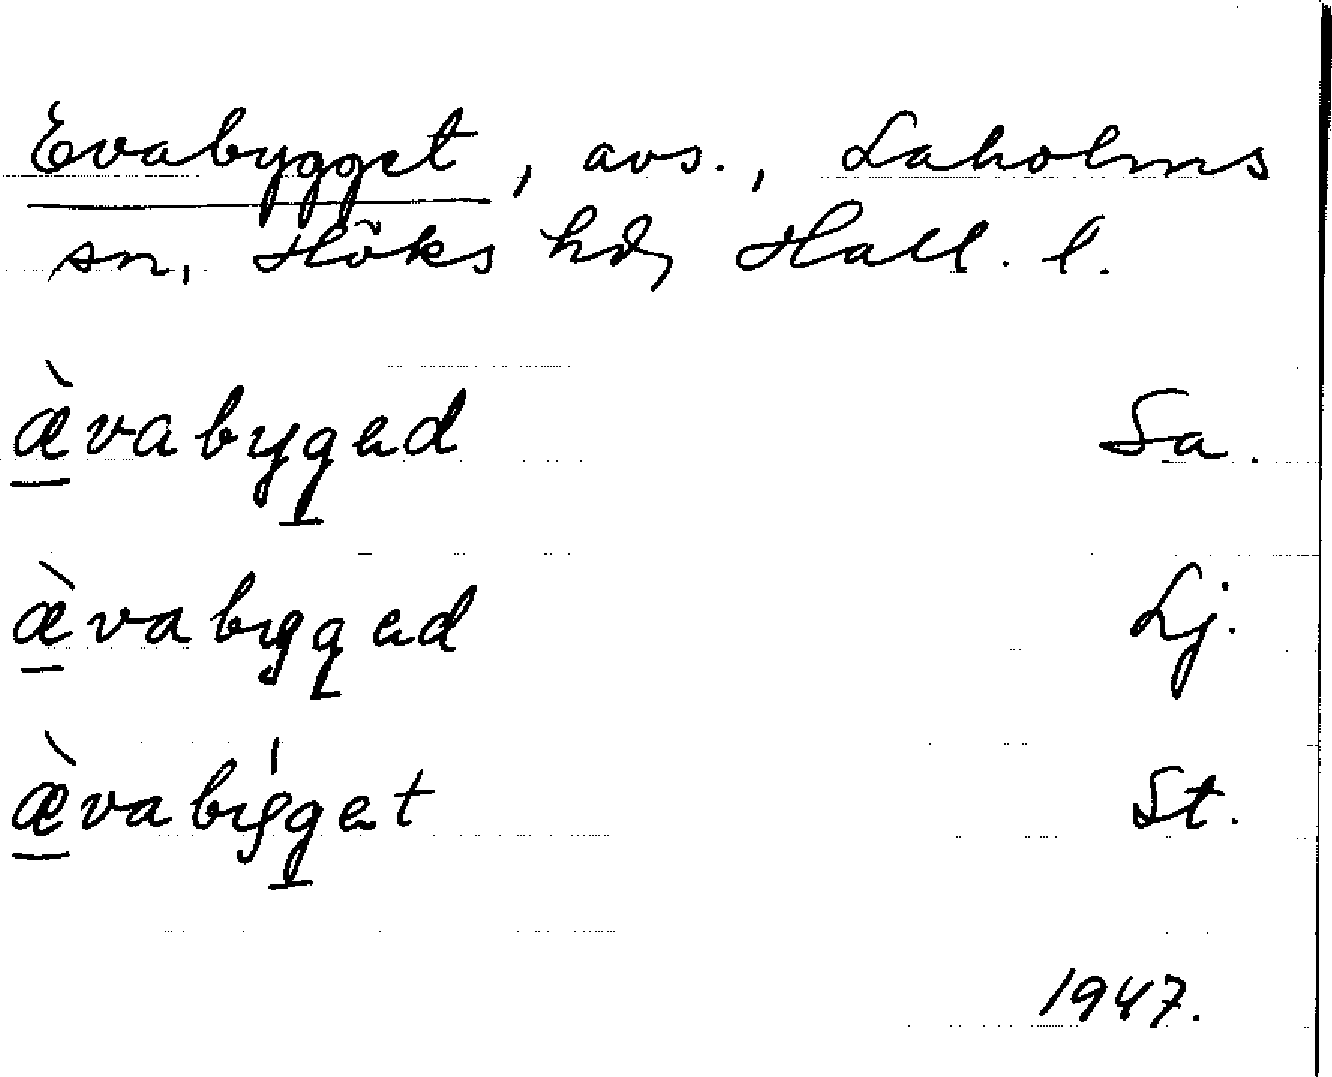 Evabygget, avs., Laholms
sn, Höks hd, Hall. l.
æ̀vabyged Sa.
æ̀vabygged Lj.
æ̀vabygget St.
1947.